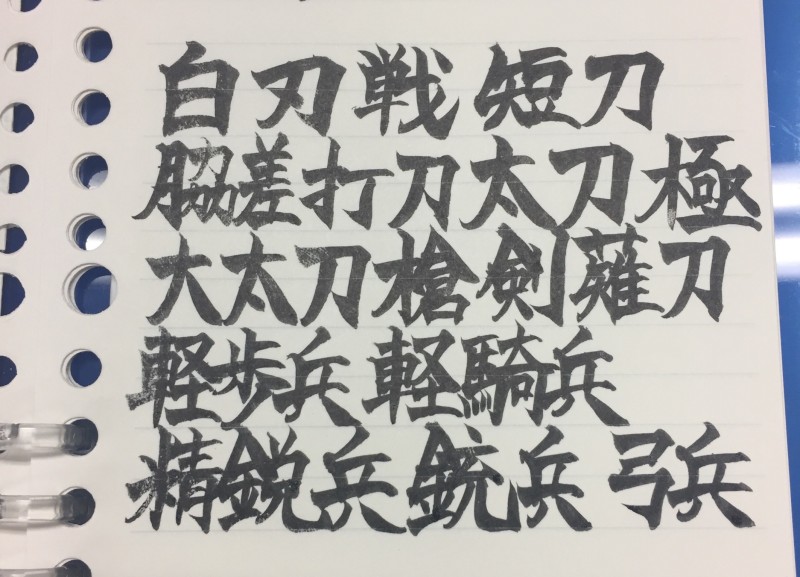 白刃戦 短刀
脇差打刀太刀極
大太刀槍剣薙刀
軽歩兵 軽騎兵
精鋭兵 銃兵 弓兵